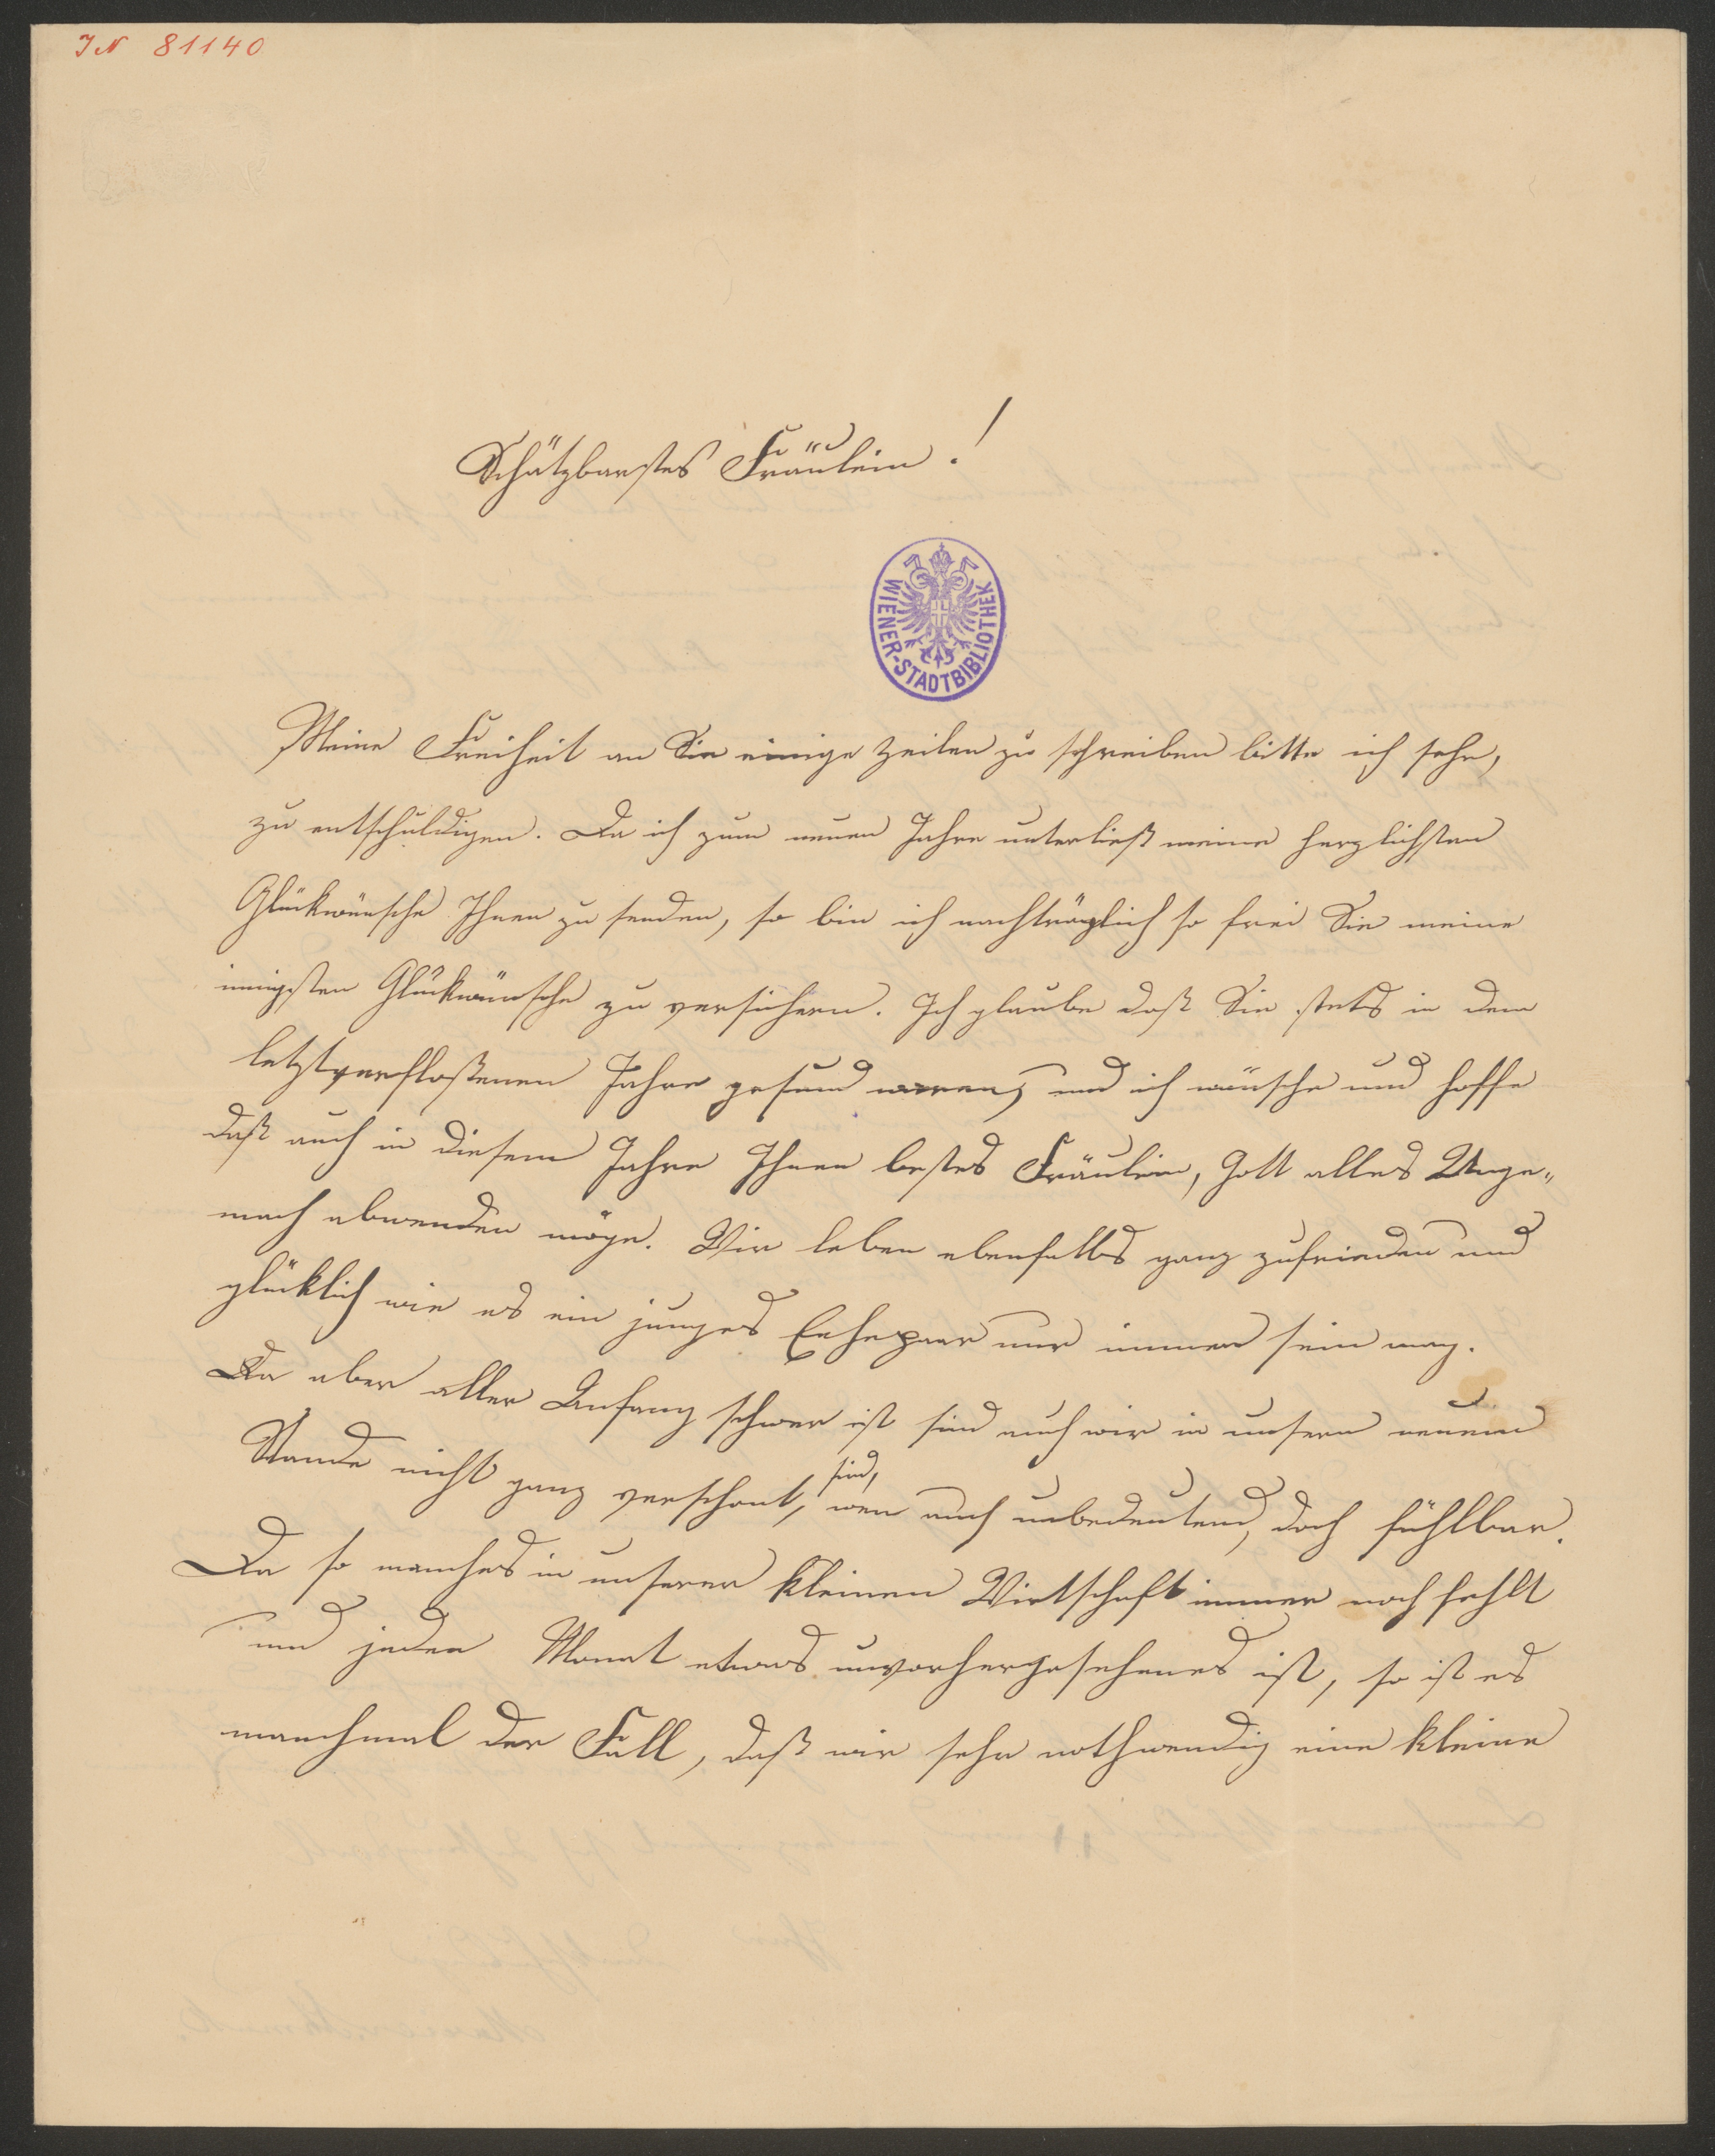 IN 81140
Schätzbarstes Fräulein!
WIENER-STADTBIBLIOTHEK
Meine Freiheit an Sie einige Zeilen zu schreiben bitte ich sehr,
zu entschuldigen. Da ich zum neuen Jahre unterließ meine herzlichsten
Glückwünsche Ihnen zu senden, so bin ich nachträglich so frei Sie meine
innigsten Glückwünsche zu versichern. Ich glaube daß Sie stets in dem
letztverfloßenen Jahre gesund waren, und ich wünsche und hoffe
daß auch in diesem Jahre Ihnen bestes Fräulein, Gott alles Unge„
mach abwenden möge. Wir leben ebenfalls ganz zufrieden und
glücklich wie es ein junges Ehepaar nur immer sein mag.
Da aber aller Anfang schwer ist sind auch wir in unsern neuen
Stande nicht ganz verschont, sind, wen auch unbedeutend, doch fühlbar.
Da so manches in unserer kleinen Wirtschaft immer noch fehlt
und jeden Monat etwas unvorhergesehenes ist, so ist es
manchmal der Fall, daß wir sehr nothwendig eine kleine